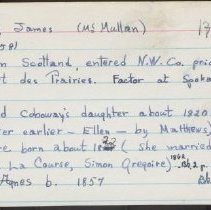 , James (McMullan)
581
n Scotland, entered N.W. Co. prio
t des Prairies. Factor at Spoka
d Coboway's daughter about 1820
er earlier - Ellen - by Matthews)
re born about 1822 ( She married
La Course, Simon Gregoire)
1862
Agnes b. 1857